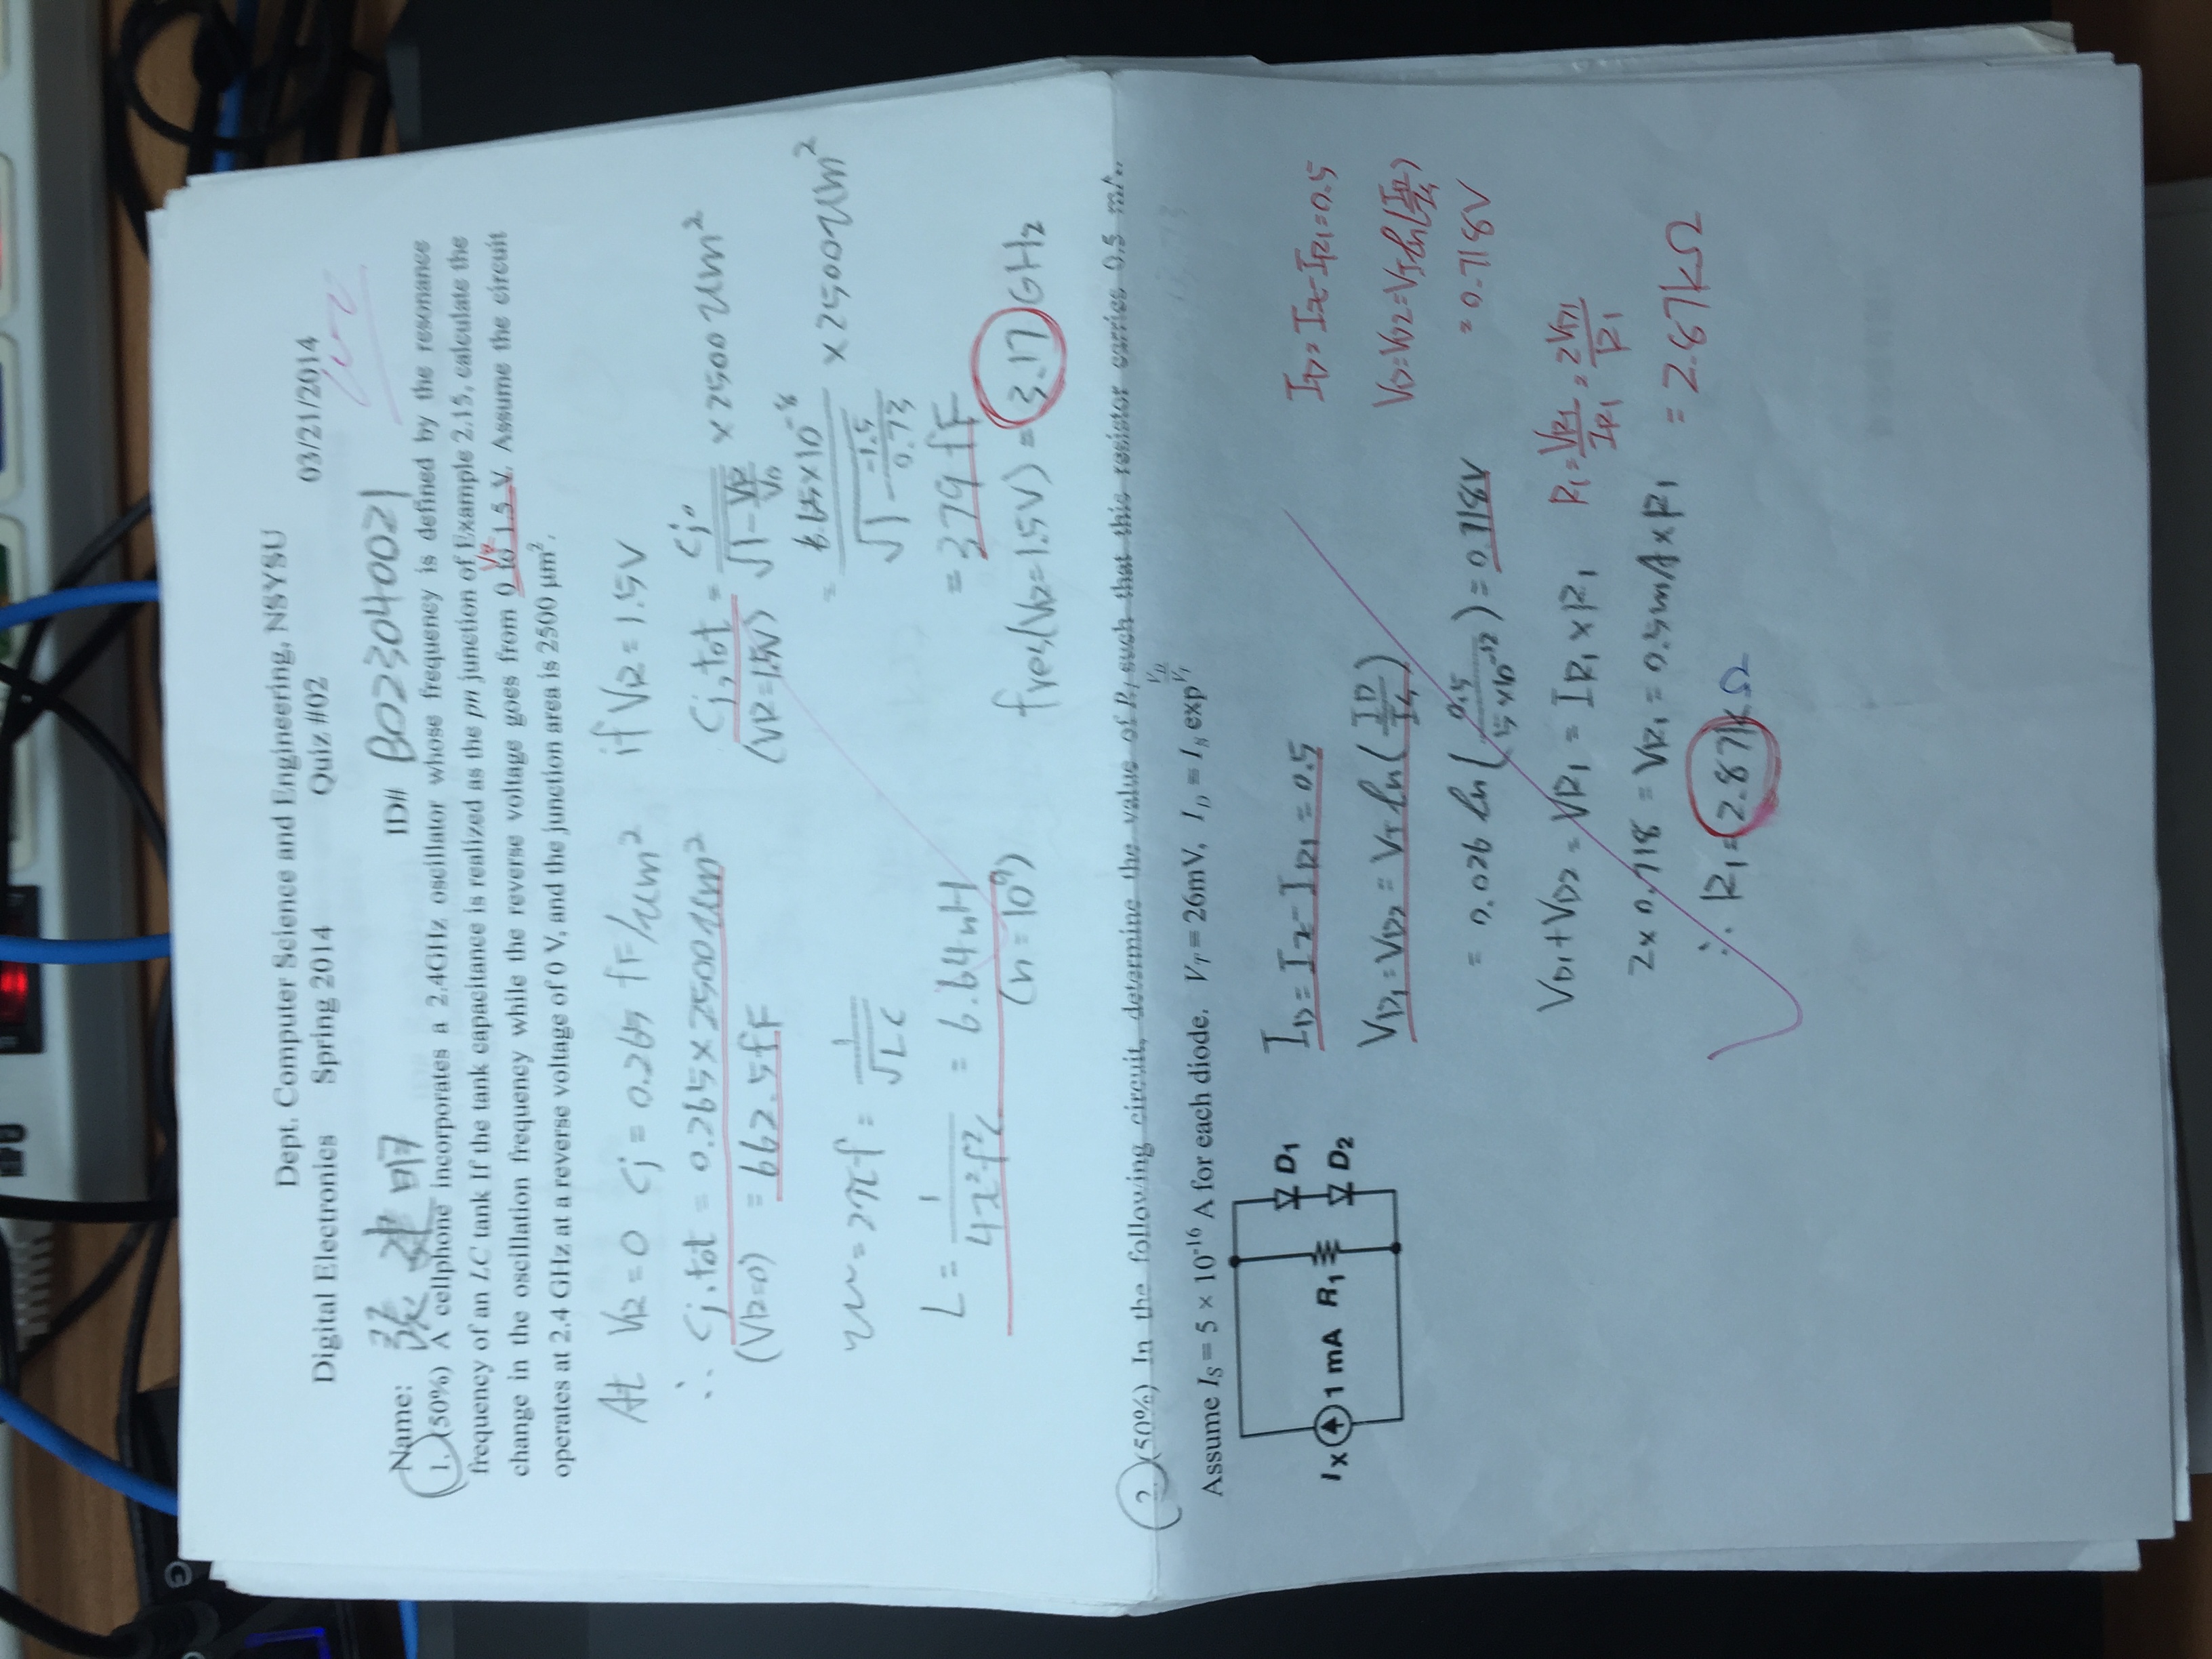 Dept. Computer Science and Engineering, NSYSU
Digital Electronics Spring 2014 Quiz #02 03/21/2014
Name: 張建明 ID# B023040021
1. (50%) A cellphone incorporates a 2.4GHz oscillator whose frequency is defined by the resonance
frequency of an LC tank If the tank capacitance is realized as the pn junction of Example 2.15, calculate the
change in the oscillation frequency while the reverse voltage goes from 0 to 1.5 V. Assume the circuit
operates at 2.4 GHz at a reverse voltage of 0 V, and the junction area is 2500 μm².
At VR=0 Cj = 0.265 fF/um²
∴ Cj,tot = 0.265×2500um²
(VR=0) = 662.5fF
= 2πf = 1/√LC
L = 1/4π²f²C = 6.64nH
(n=10⁹)
if VR = 1.5V
Cj,tot = Cj0/√1-VR/V0 × 2500um²
(VR=1.5V)
= ×10⁻⁸/√1- -1.5/0.73 × 2500um²
= 379 fF
fres(VR=1.5V) = 3.17 GHz
2. (50%) In the following circuit, determine the value of R1 such that this resistor carries 0.5 mA.
Assume IS = 5 × 10⁻¹⁶ A for each diode. VT = 26mV, ID = Is exp VD/VT
IX 1 mA R1 D1 D2
ID = Ix - IR1 = 0.5
VD1 = VD2 = VT ln(ID/Is)
= 0.026 ln(0.5/5×10⁻¹²) = 0.718V
VD1+VD2 = VR1 = IR1 × R1
2×0.718 = VR1 = 0.5mA×R1
∴ R1 = 2.87kΩ
ID = Ix - IR1 = 0.5
VD=VD2=VT ln(ID/Is)
= 0.718V
R1 = VR1/IR1 = 2VD1/R1
= 2.87kΩ